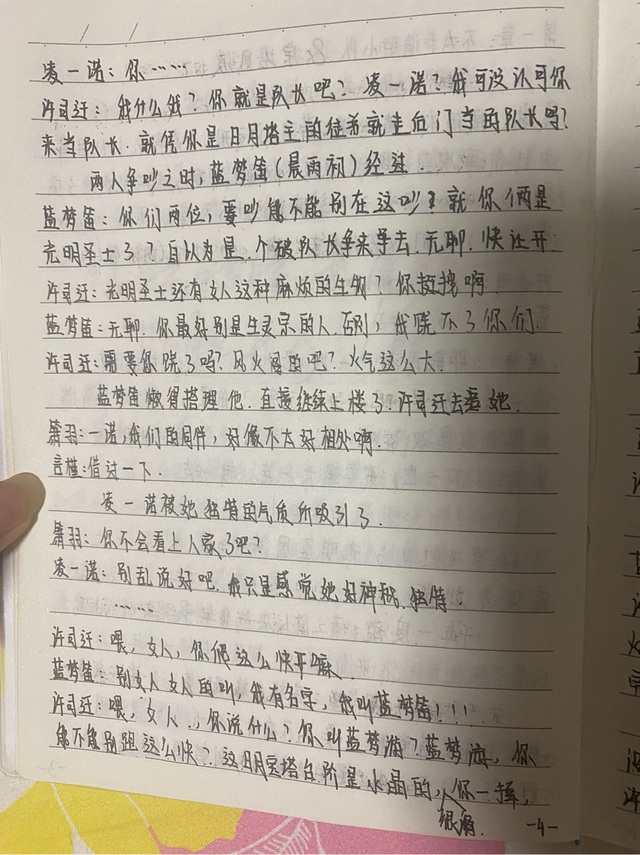 凌一诺：你……
许司迁：我什么我？你就是队长吧？凌一诺？我可没认可你
来当队长.就凭你是日月塔主的徒弟就走后门当的队长吗？
两人争吵之时，蓝梦笛（晨雨初）经过.
蓝梦笛：你们两位，要吵能不能别在这吵？就你俩是
光明圣士了？自以为是.个破队长争来争去.无聊.快让开
许司迁：光明圣士还有女人这种麻烦的生物？你挺拽啊
蓝梦笛：无聊.你最好别是生灵宗的人.否则，我饶不了你们.
许司迁：需要你饶了吗？风火阁的吧？火气这么大.
蓝梦笛懒得搭理他.直接继续上楼了.许司迁去追她.
箫羽：一诺，我们的同伴，好像不太好相处啊.
言槿：借过一下.
凌一诺被她独特的气质所吸引了.
箫羽：你不会看上人家了吧？
凌一诺：别乱说好吧.我只是感觉她好神秘.独特.
……
许司迁：喂，女人，你爬这么快干嘛.
蓝梦笛：别女人女人的叫，我有名字，我叫蓝梦笛！！！
许司迁：喂，女人.，你说什么？你叫蓝梦海？蓝梦海，你
能不能别跑这么快？这明宝塔台阶是水晶的，你一摔，
很滑.
-4-